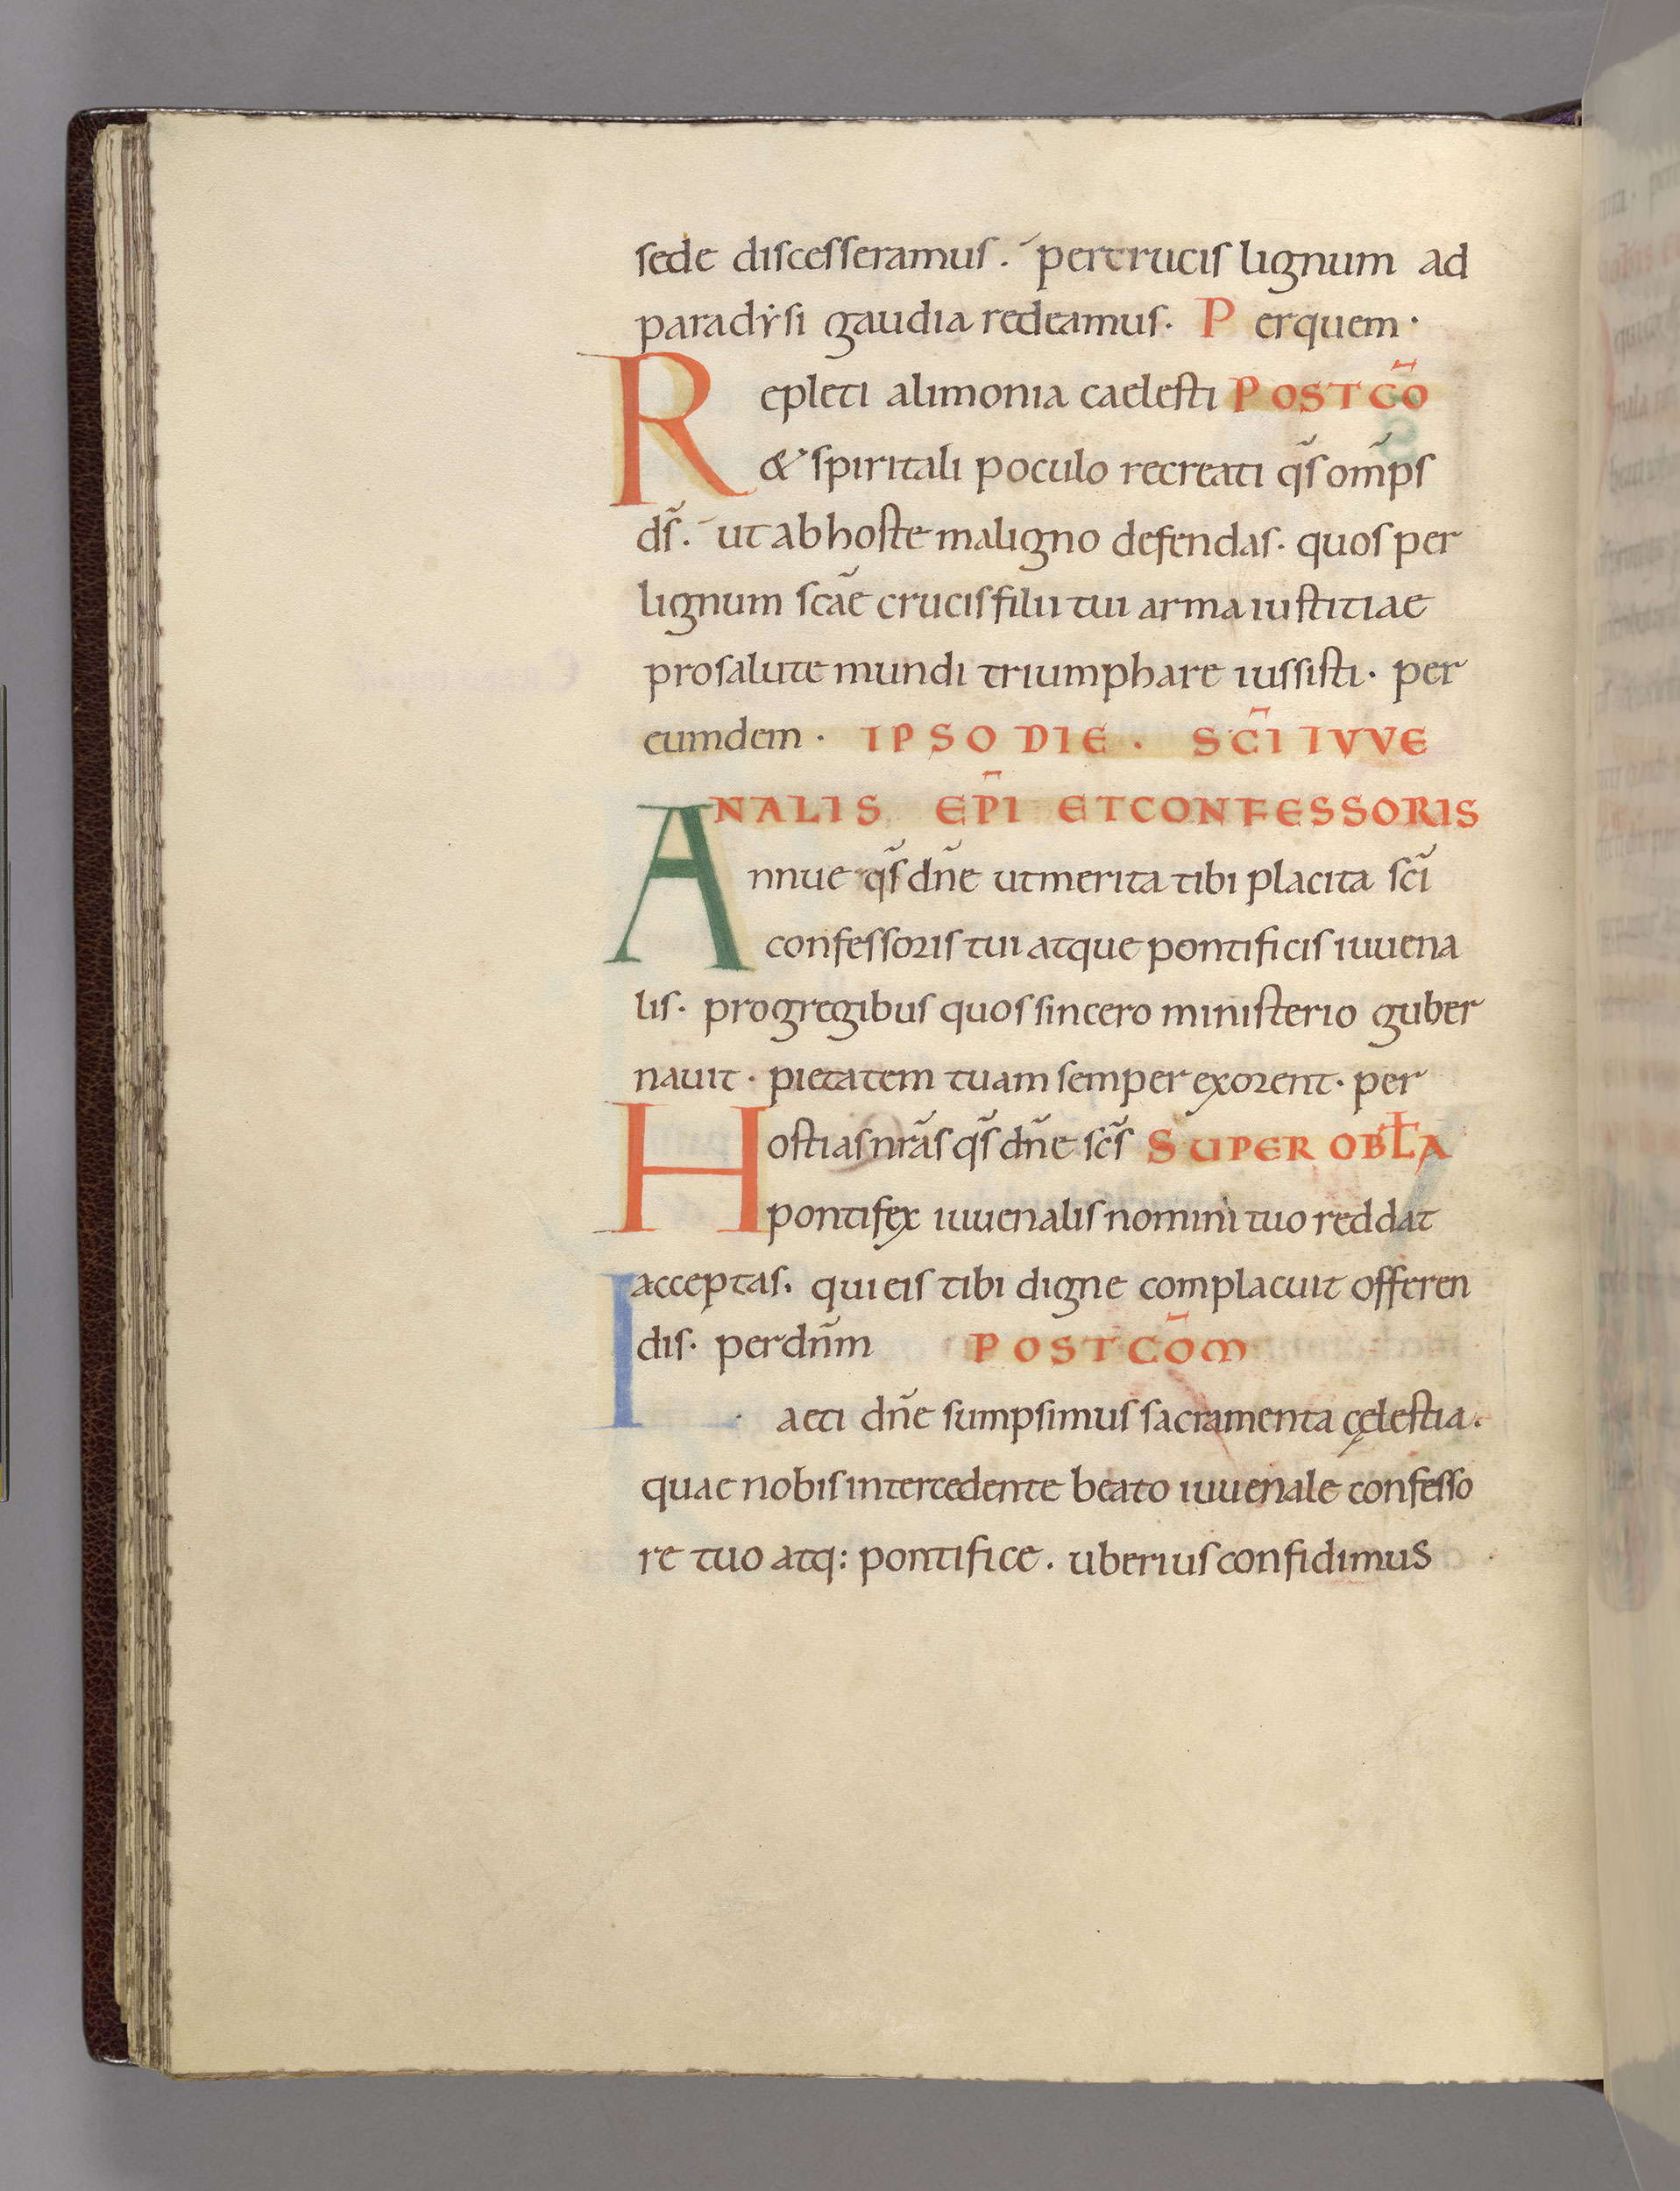 sede discesseramus. per crucis lignum ad
paradẏsi gaudia redeamus. P erquem.
Repleti alimonia caelesti POST CÕ
&spiritali poculo recreati qs̃ omp̃s
ds̃. ut ab hoste maligno defendas. quos per
lignum scãe crucis filii tui arma iustitiae
pro salute mundi triumphare iussisti. per
eumdem. IPSO DIE. SC̃I IVVE
NALIS EP̃I ET CONFESSORIS
Annue qs̃ dñe ut merita tibi placita scĩ
confessoris tui atque pontificis iuuena
lis. pro gregibus quos sincero ministerio guber
nauit. pietatem tuam semper exorent. per
Hostias nrãs qs̃ dñe scs̃ SUPER OBŁA
pontifex iuuenalis nomini tuo reddat
acceptas. qui eis tibi digne complacuit offeren
dis. per dñm POST CÕM
Laeti dñe sumpsimus sacramenta cęlestia.
quae nobis intercedente beato iuuenale confesso
re tuo atq: pontifice. uberius confidimus